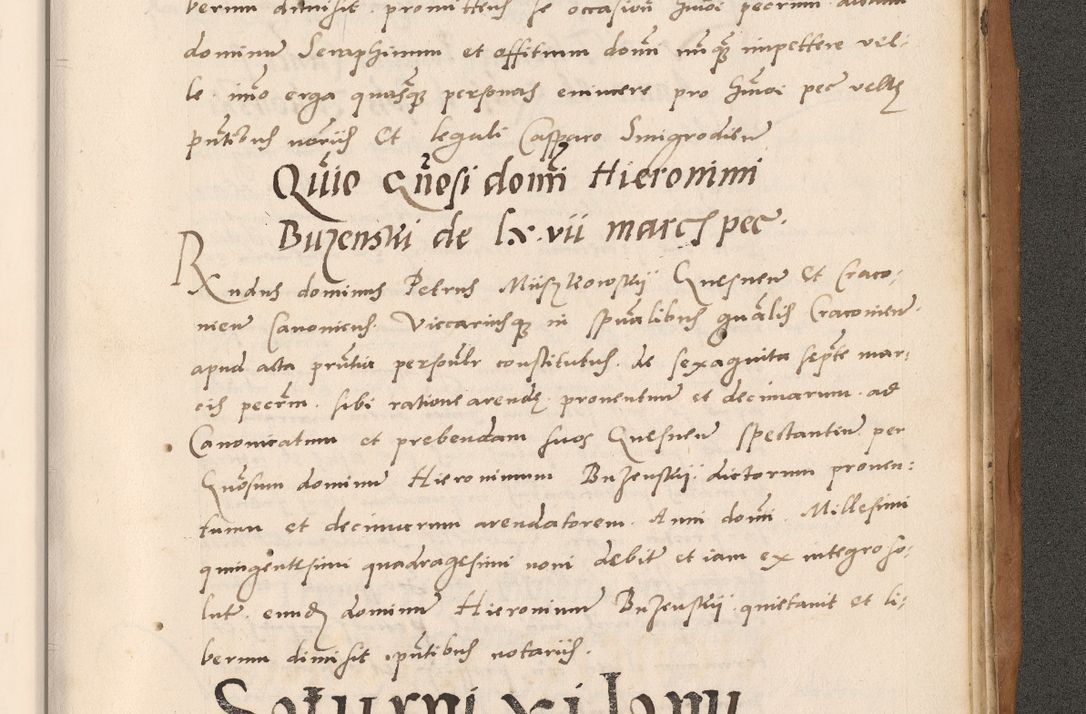 berum dimisit promittens se occasione hmõi pecrum dictum
dominum Seraphinum et offitium domi nunq̃ impettere vel:
le immo erga quascq personas evincere pro hmõi pec vellet
pñtibus notariis Et legali Casparo Smigrodien̄
Quĩe Gñosi domĩ Hieronimi
Buzenski de lx vii marcs pec
Rñdus dominus Petrus Miiszkowskij Gnesnen̄ Et Craco:
nien̄ Canonicus Viccariusq in spũalibus gñalis Cracovien̄
apud acta pñtia personl̃r constitutus de sexaginta septē mar:
cis pecrm̃ sibi ratione arendę proventuum et decimarum ad
Canonicatum et prebendam suos Gnesnen̄ spectantium per
Gñosum dominum Hieronimum Buzenskij dictorum proven:
tuum et decimarum arendatorem Anni domĩ Millesimi
quingentesimi quadragesimi noni debitis et iam ex integro so:
lutis eundem dominum Hieronimum Buzenskij quietavit et li:
berum dimisit pñtibus notariis
Saturni xi Janu